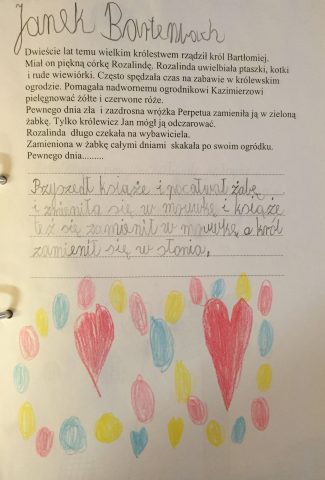 Janek Bartenbach
Dwieście lat temu wielkim królestwem rządził król Bartłomiej.
Miał on piękną córkę Rozalindę. Rozalinda uwielbiała ptaszki, kotki
i rude wiewiórki. Często spędzała czas na zabawie w królewskim
ogrodzie. Pomagała nadwornemu ogrodnikowi Kazimierzowi
pielęgnować żółte i czerwone róże.
Pewnego dnia zła i zazdrosna wróżka Perpetua zamieniła ją w zieloną
żabkę. Tylko królewicz Jan mógł ją odczarować.
Rozalinda długo czekała na wybawiciela.
Zamieniona w żabkę całymi dniami skakała po swoim ogródku.
Pewnego dnia.........
Przyszedł książe i pocałwał żabę
i zmieniła się w mrówkę i książe
też się zamienił w mrówkę a król
zamienił się w słonia.